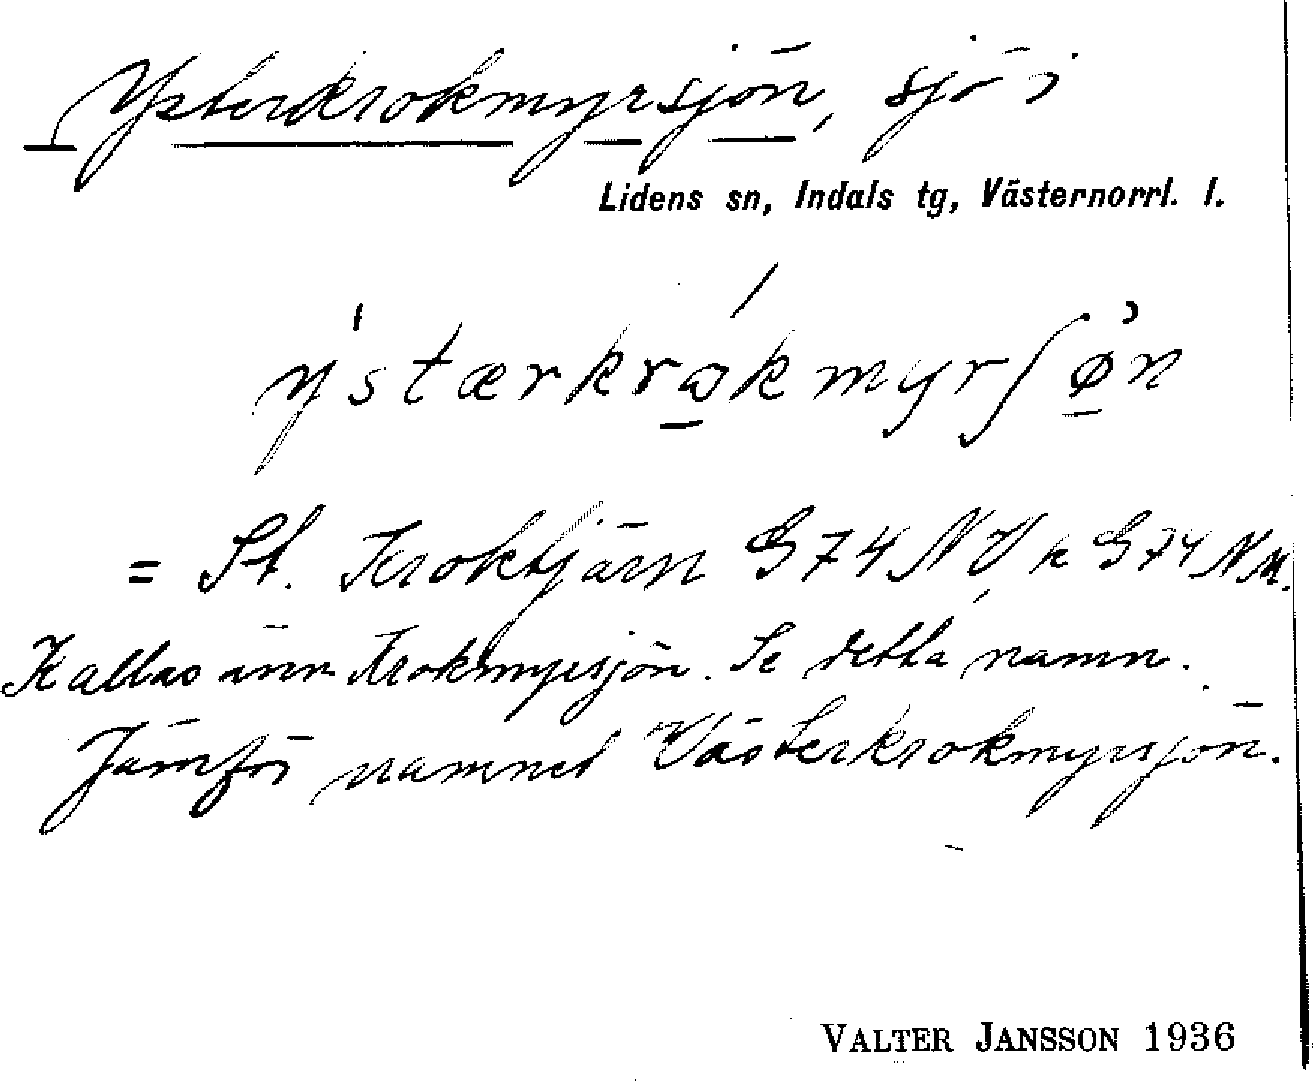 Ysterkrokmyrsjön, sjö i
Lidens sn, Indals tg, Västernorrl. l.
ýstærkrώ̱kmyrʃø̱̀n
= St. Kroktjärn G 74 NV k G 74 N m.
Kallas även Krokmyrsjön. Se detta namn.
Jämför namnet Västerkrokmyrsjön.
VALTER JANSSON 1936